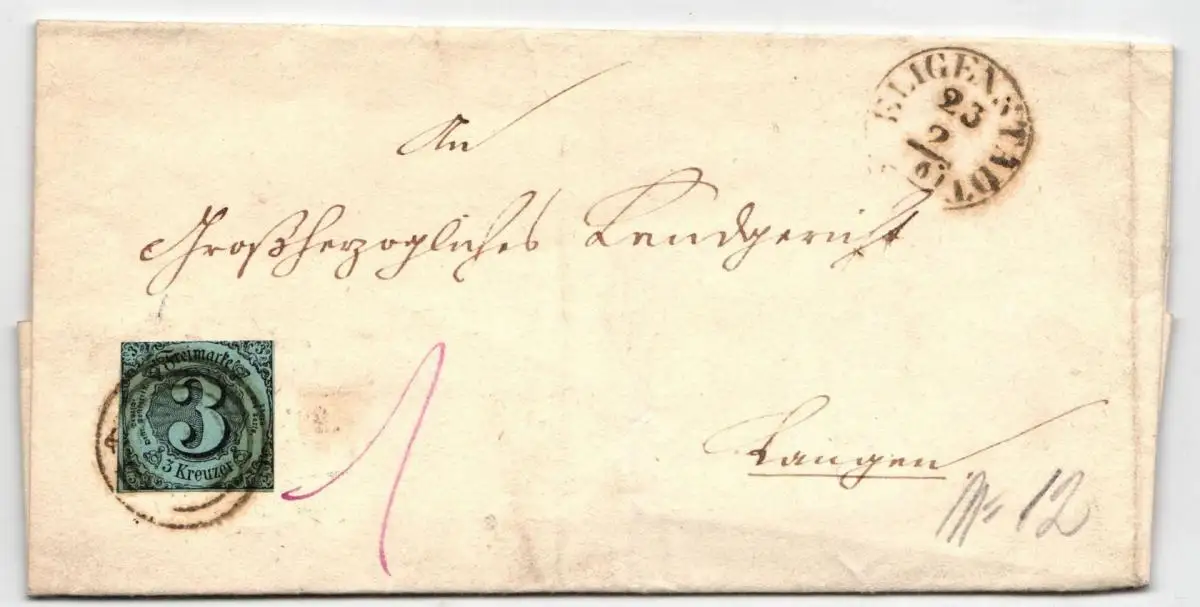 ELIGENSTADT
23
2
An
Großherzogliches Landgericht
Freimarke
3
3 Kreuzer
1
Langen
12